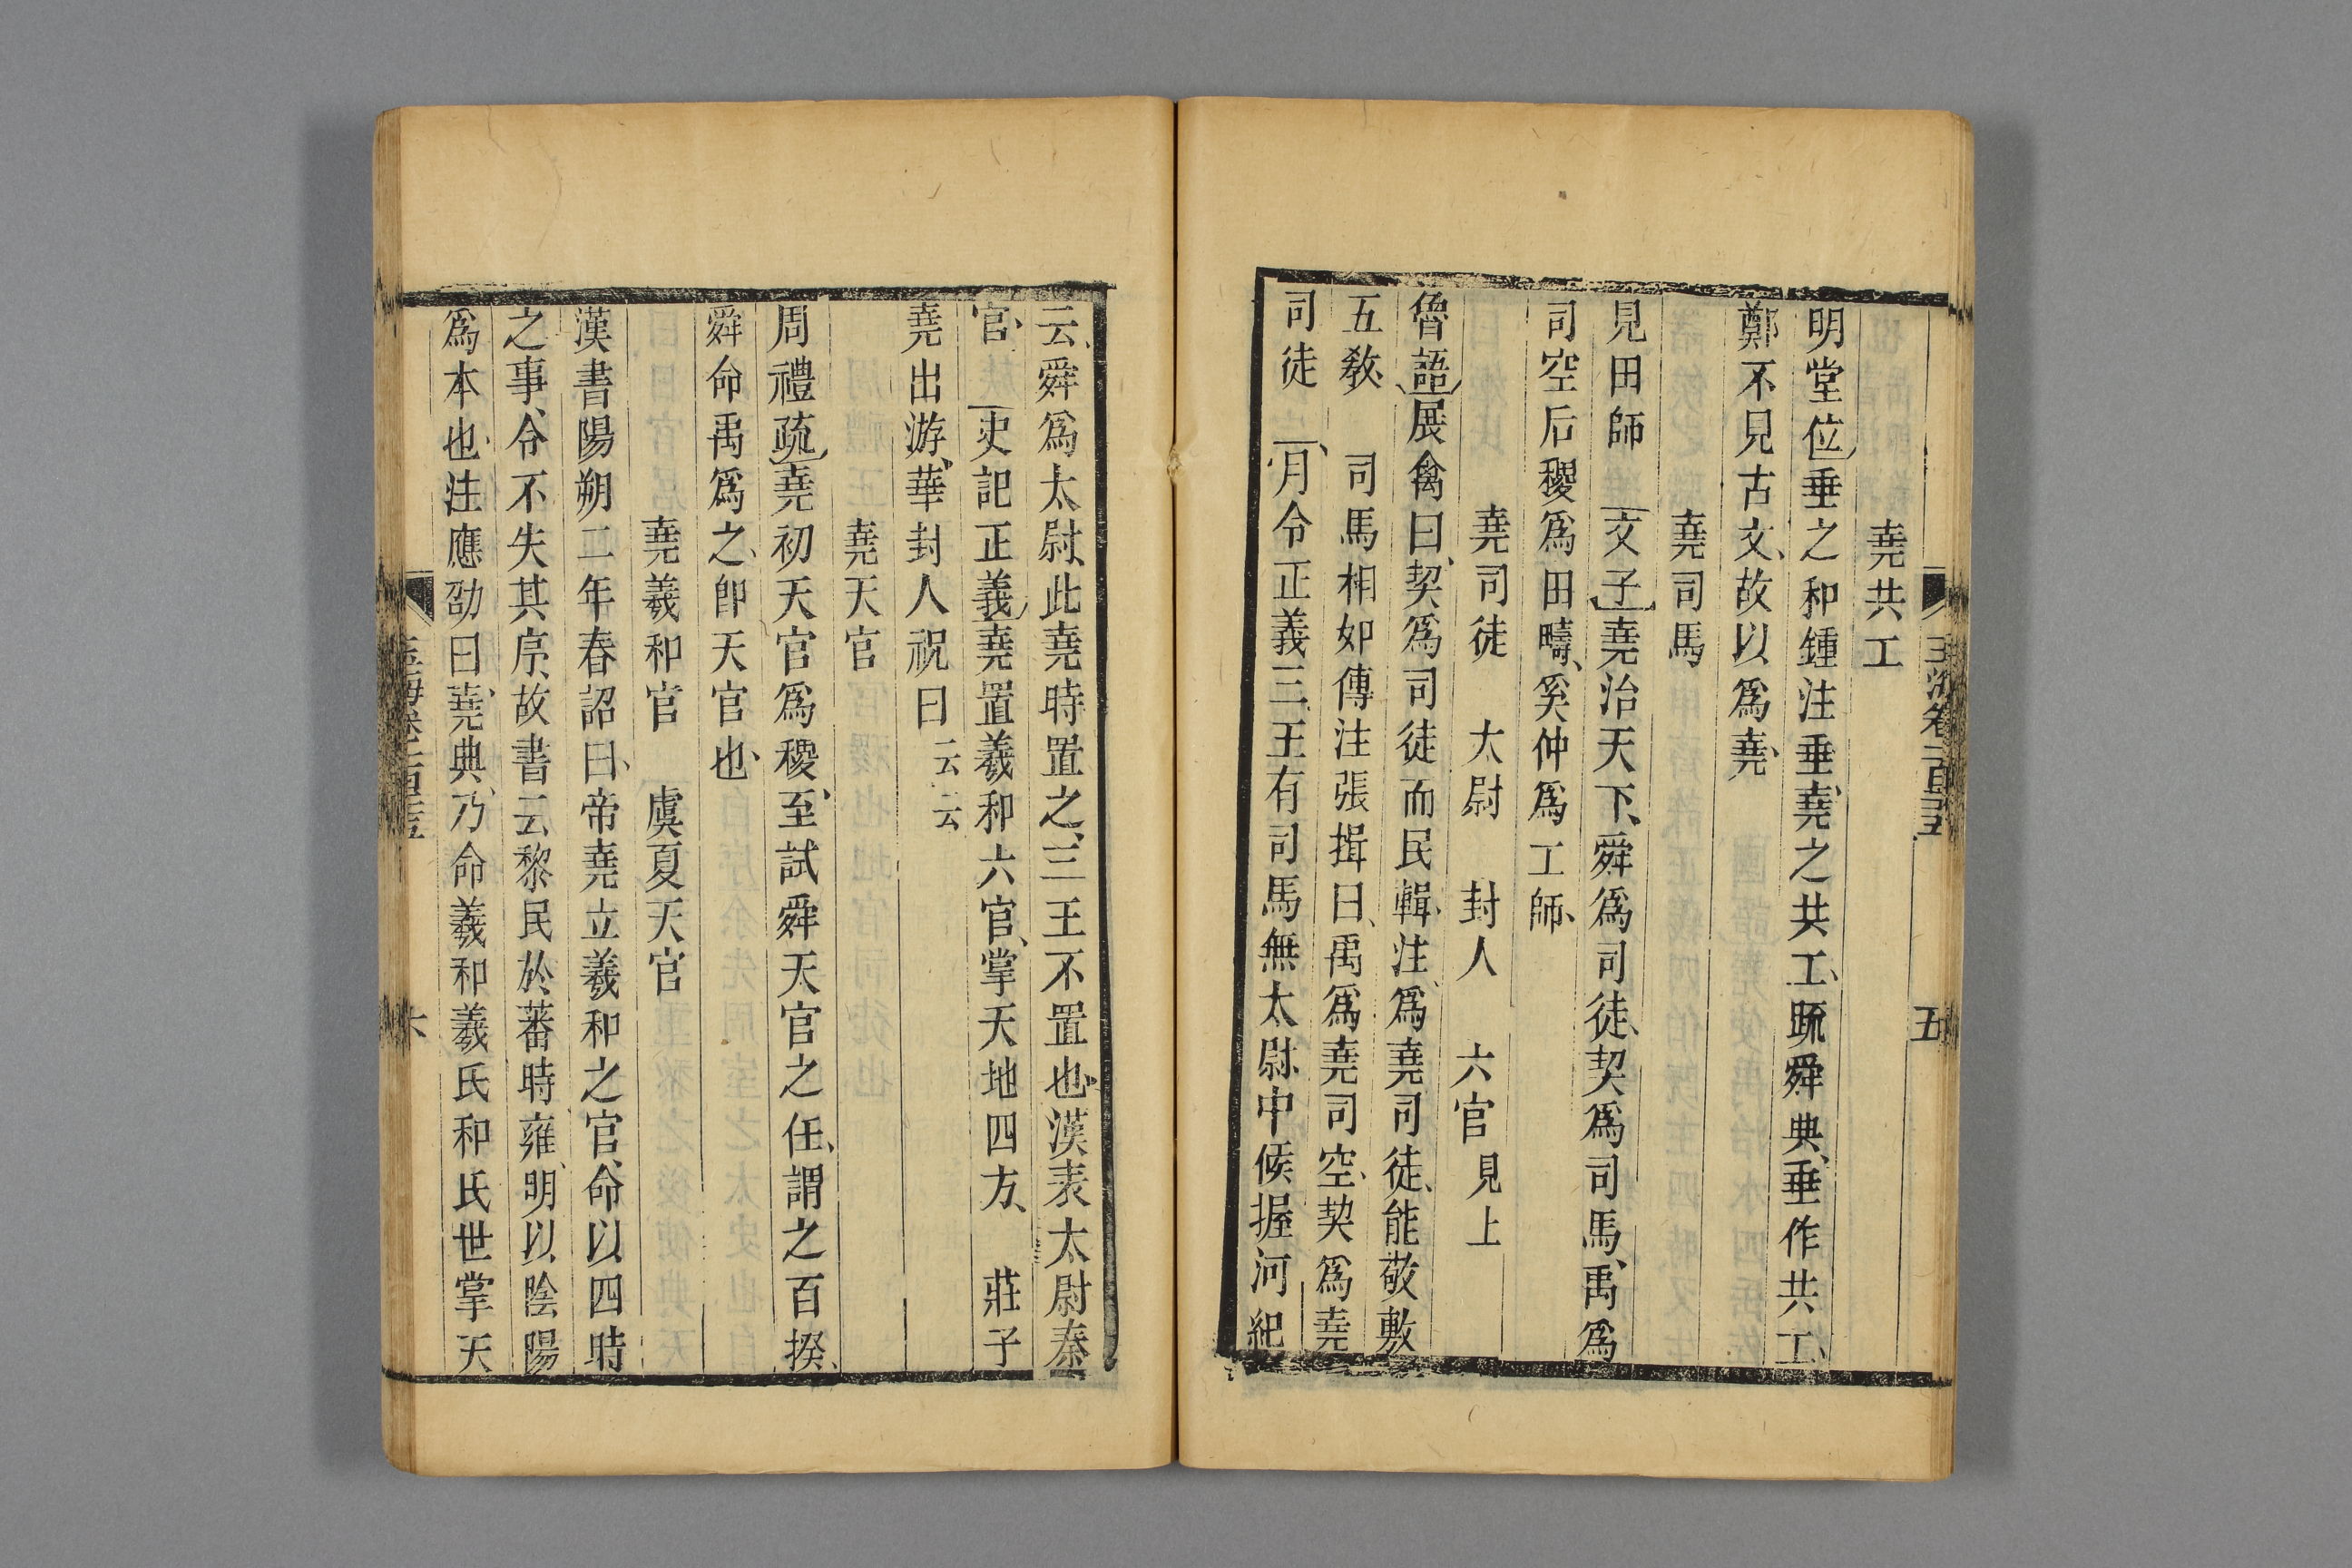 玉海卷二百三五
五
堯共工
明堂位垂之和鍾注垂堯之共工疏舜典垂作共工
鄭不見古文故以爲堯
堯司馬
見田師　文子堯治天下舜爲司徒契爲司馬禹爲
司空后稷爲田疇奚仲爲工師
堯司徒　太尉　封人　六官見上
魯語展禽曰契爲司徒而民輯注爲堯司徒能敬敷
五教　司馬相如傳注張揖曰禹爲堯司空契爲堯
司徒　月令正義三王有司馬無太尉中候握河紀
云舜爲太尉此堯時置之三王不置也漢表太尉秦
官　史記正義堯置羲和六官掌天地四方　莊子
堯出游華封人祝曰云云
堯天官
周禮疏堯初天官爲稷至試舜天官之任謂之百揆
舜命禹爲之卽天官也
堯羲和官　虞夏天官
漢書陽朔二年春詔曰帝堯立羲和之官命以四時
之事令不失其序故書云黎民於蕃時雍明以陰陽
爲本也注應劭曰堯典乃命羲和羲氏和氏世掌天
六